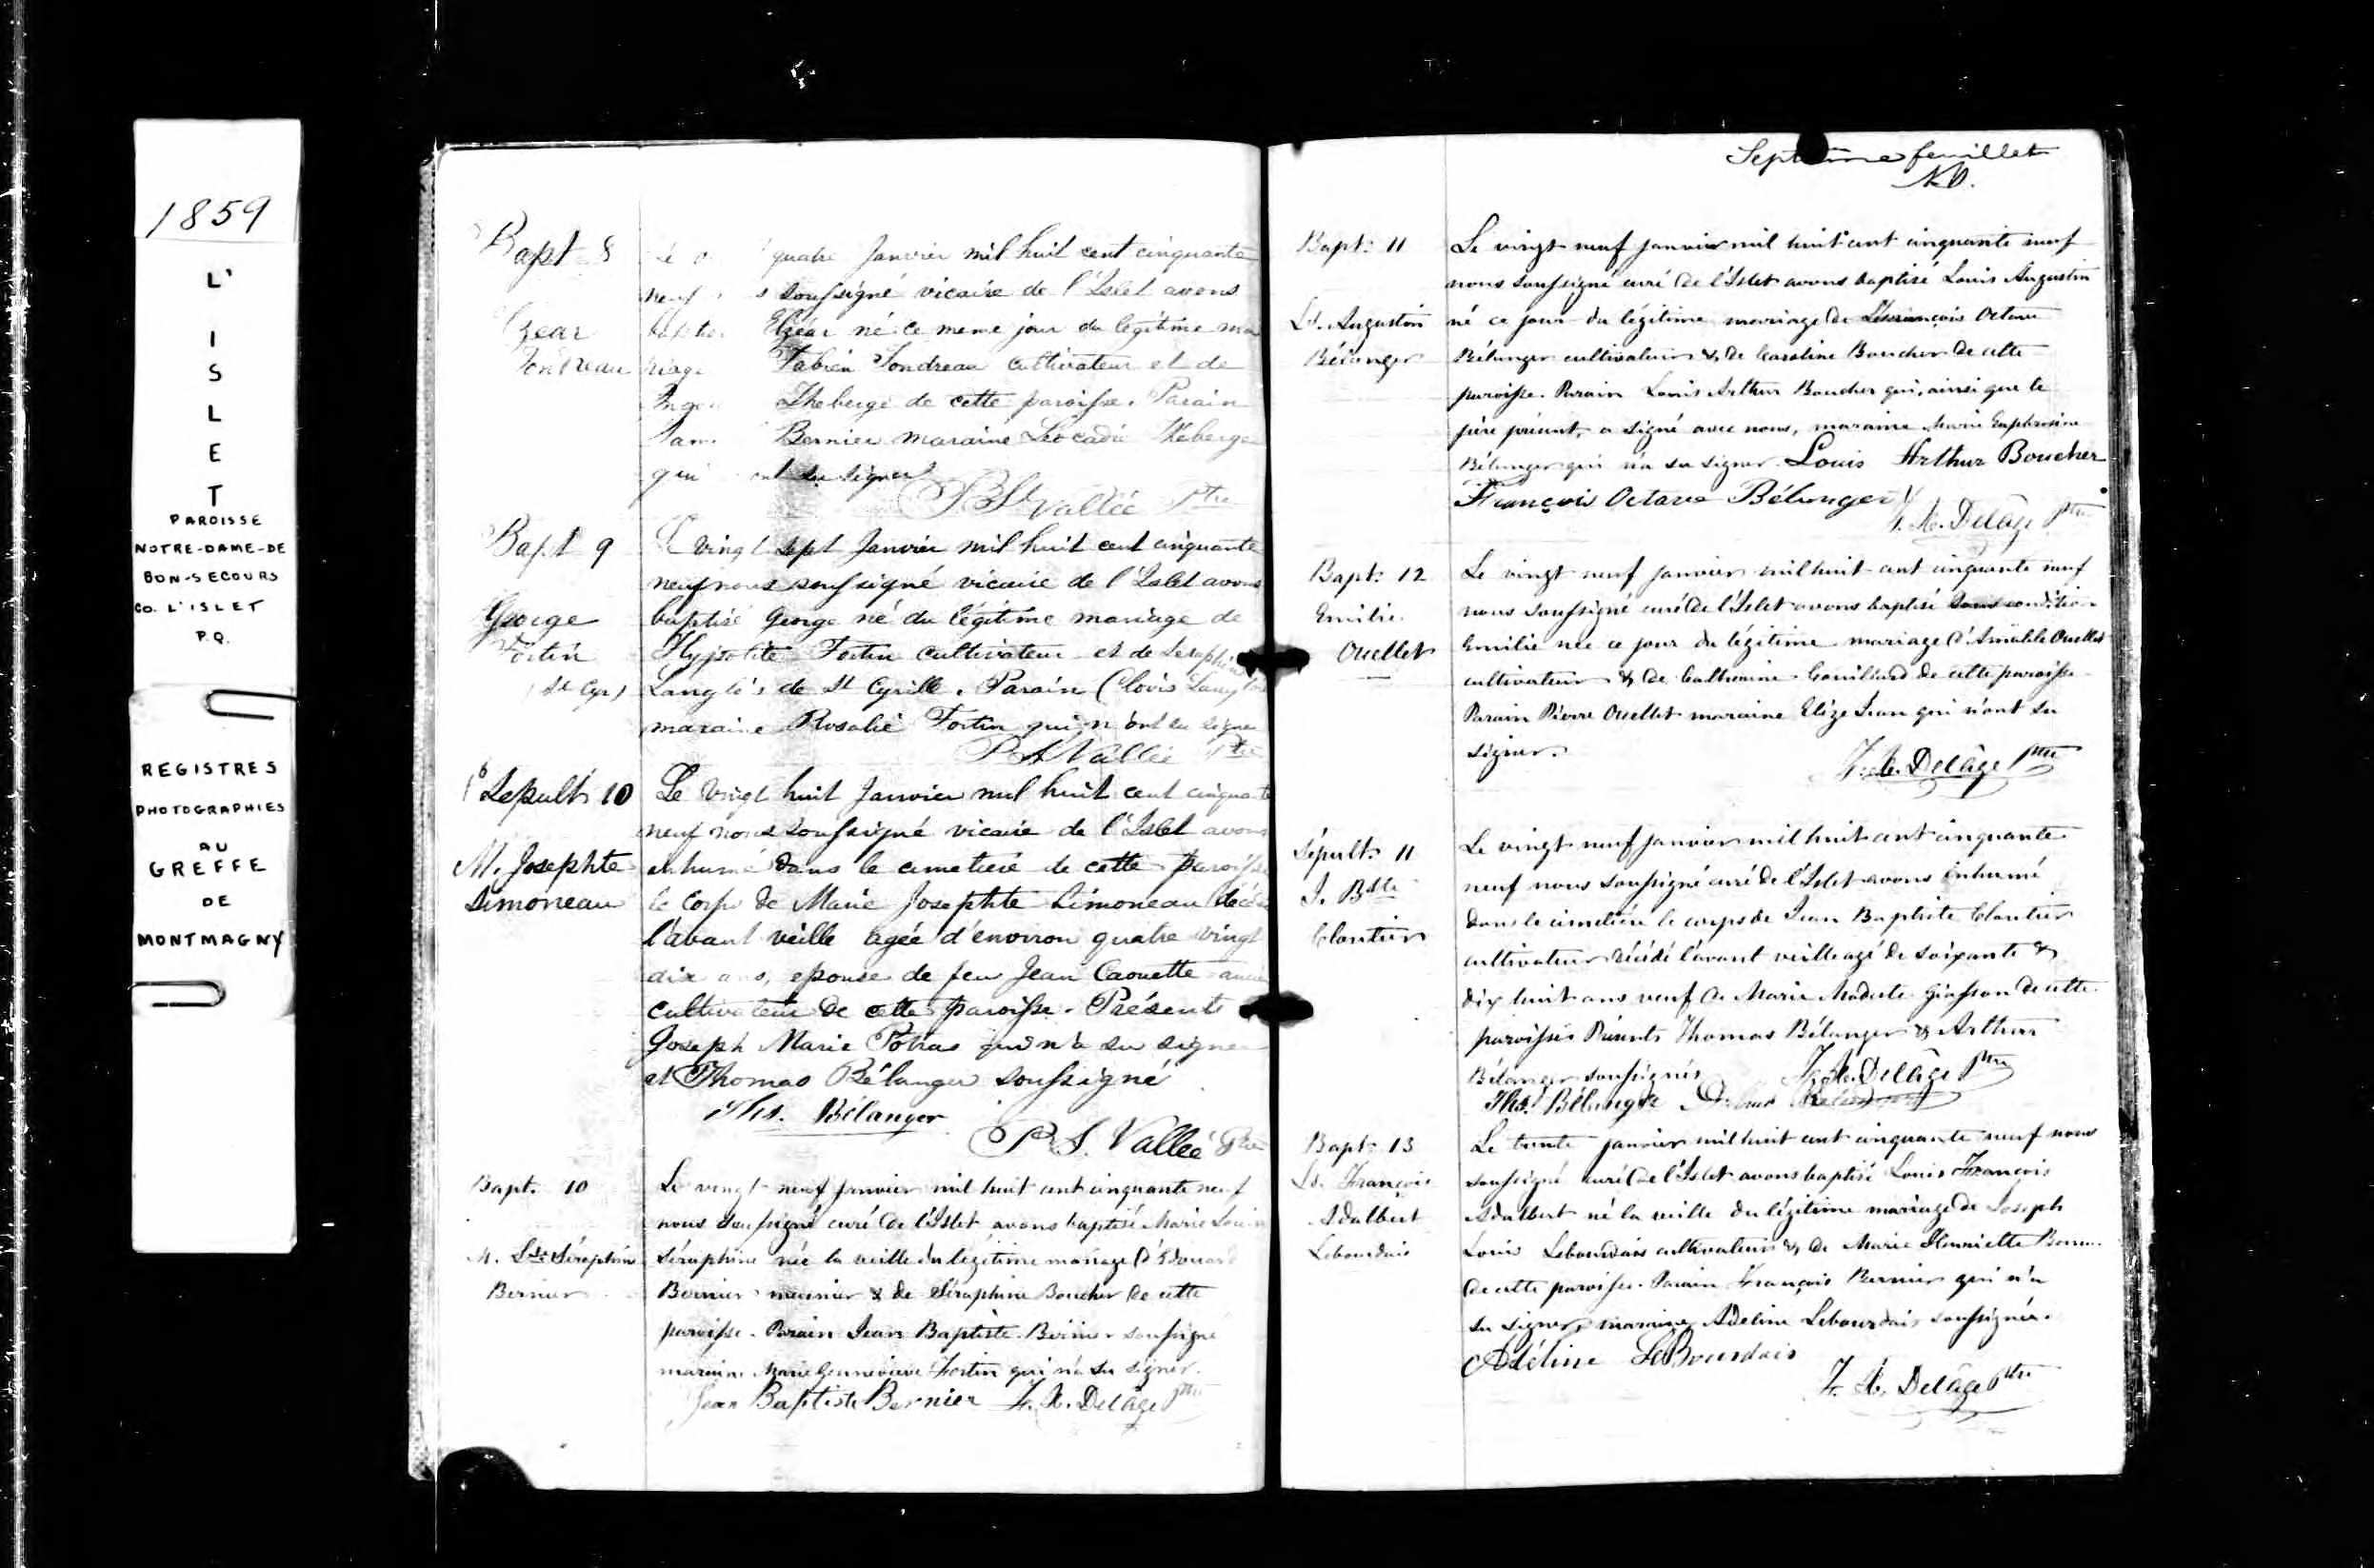 1859
L'
I
S
L
E
T
PAROISSE
NOTRE-DAME-DE
BON-SECOURS
CO. L'ISLET
P.Q.
REGISTRES
PHOTOGRAPHIES
AU
GREFFE
DE
MONTMAGNY
Bapt. 8
quatre Janvier mil huit cent cinquante
neuf soussigné vicaire de l'Islet avons
Elzéar né ce meme jour du legitime ma
riage Fabien Tondreau cultivateur et de
Theberge de cette paroisse. Parain
Bernier maraine Léocadie Theberge
qui ont su signer
P.S. Vallée Ptre
Bapt 9
George
Fortin
(St Cyr)
Le vingt sept Janvier mil huit cent cinquante
neuf nous soussigné vicaire de l'Islet avons
baptisé George né du légitime mariage de
Hypolite Fortin cultivateur et de Seraphine
Langlois de St Cyrille. Parain Clovis Langlois
maraine Rosalie Fortin qui n'ont su signer
P.S. Vallée Ptre
Sepult. 10
M. Josephte
Simoneau
Le vingt huit Janvier mil huit cent cinquante
neuf nous soussigné vicaire de l'Islet avons
inhumé dans le cimetière de cette paroisse
le corps de Marie Josephte Simoneau décédée
l'avant veille agée d'environ quatre vingt
dix ans, epouse de feu Jean Caouette
cultivateur de cette paroisse. Présents
Joseph Marie Potras qui n'a su signer
et Thomas Bélanger soussigné
Ths. Bélanger
P.S. Vallée Ptre
Bapt. 10
M. Lse Séraphine
Bernier
Le vingt neuf janvier mil huit cent cinquante neuf
nous soussigné curé de l'Islet avons baptisé Marie Louise
Séraphine née la veille du légitime mariage d'Edouard
Bernier meunier & de Séraphine Boucher de cette
paroisse. Parain Jean Baptiste Bernier soussigné
maraine Marie Geneviève Fortin qui n'a su signer.
Jean Baptiste Bernier F. X. Delâge Ptre
Septième feuillet
Bapt. 11
Ls. Augustin
Bélanger
Le vingt neuf janvier mil huit cent cinquante neuf
nous soussigné curé de l'Islet avons baptisé Louis Augustin
né ce jour du légitime mariage de François Octave
Bélanger cultivateur & de Caroline Boucher de cette
paroisse. Parain Louis Arthur Boucher qui, ainsi que le
père présent, a signé avec nous, maraine Marie Euphrosine
Bélanger qui n'a su signer. Louis Arthur Boucher
François Octave Bélanger
F. X. Delâge Ptre
Bapt. 12
Emilie
Ouellet
Le vingt neuf janvier mil huit cent cinquante neuf
nous soussigné curé de l'Islet avons baptisé sous condition
Emilie née ce jour du légitime mariage d'Amable Ouellet
cultivateur & de Catherine Couillard de cette paroisse
Parain Pierre Ouellet maraine Elize Jean qui n'ont su
signer.
F. X. Delâge Ptre
Sépult. 11
J. Bste
Cloutier
Le vingt neuf janvier mil huit cent cinquante
neuf nous soussigné curé de l'Islet avons inhumé
dans le cimetière le corps de Jean Baptiste Cloutier
cultivateur décédé l'avant veille agé de soixante &
dix huit ans veuf de Marie Modeste Giasson de cette
paroisse Présents Thomas Bélanger & Arthur
Bélanger soussignés F. X. Delâge Ptre
Ths. Bélanger
Bapt. 13
Ls. François
Adalbert
Lebourdais
Le trente janvier mil huit cent cinquante neuf nous
soussigné curé de l'Islet avons baptisé Louis François
Adalbert né la veille du légitime mariage de Joseph
Louis Lebourdais cultivateur & de Marie Henriette
de cette paroisse. Parain François Bernier qui n'a
su signer, maraine Adeline Lebourdais soussignée.
Adéline LeBourdais
F. X. Delâge Ptre